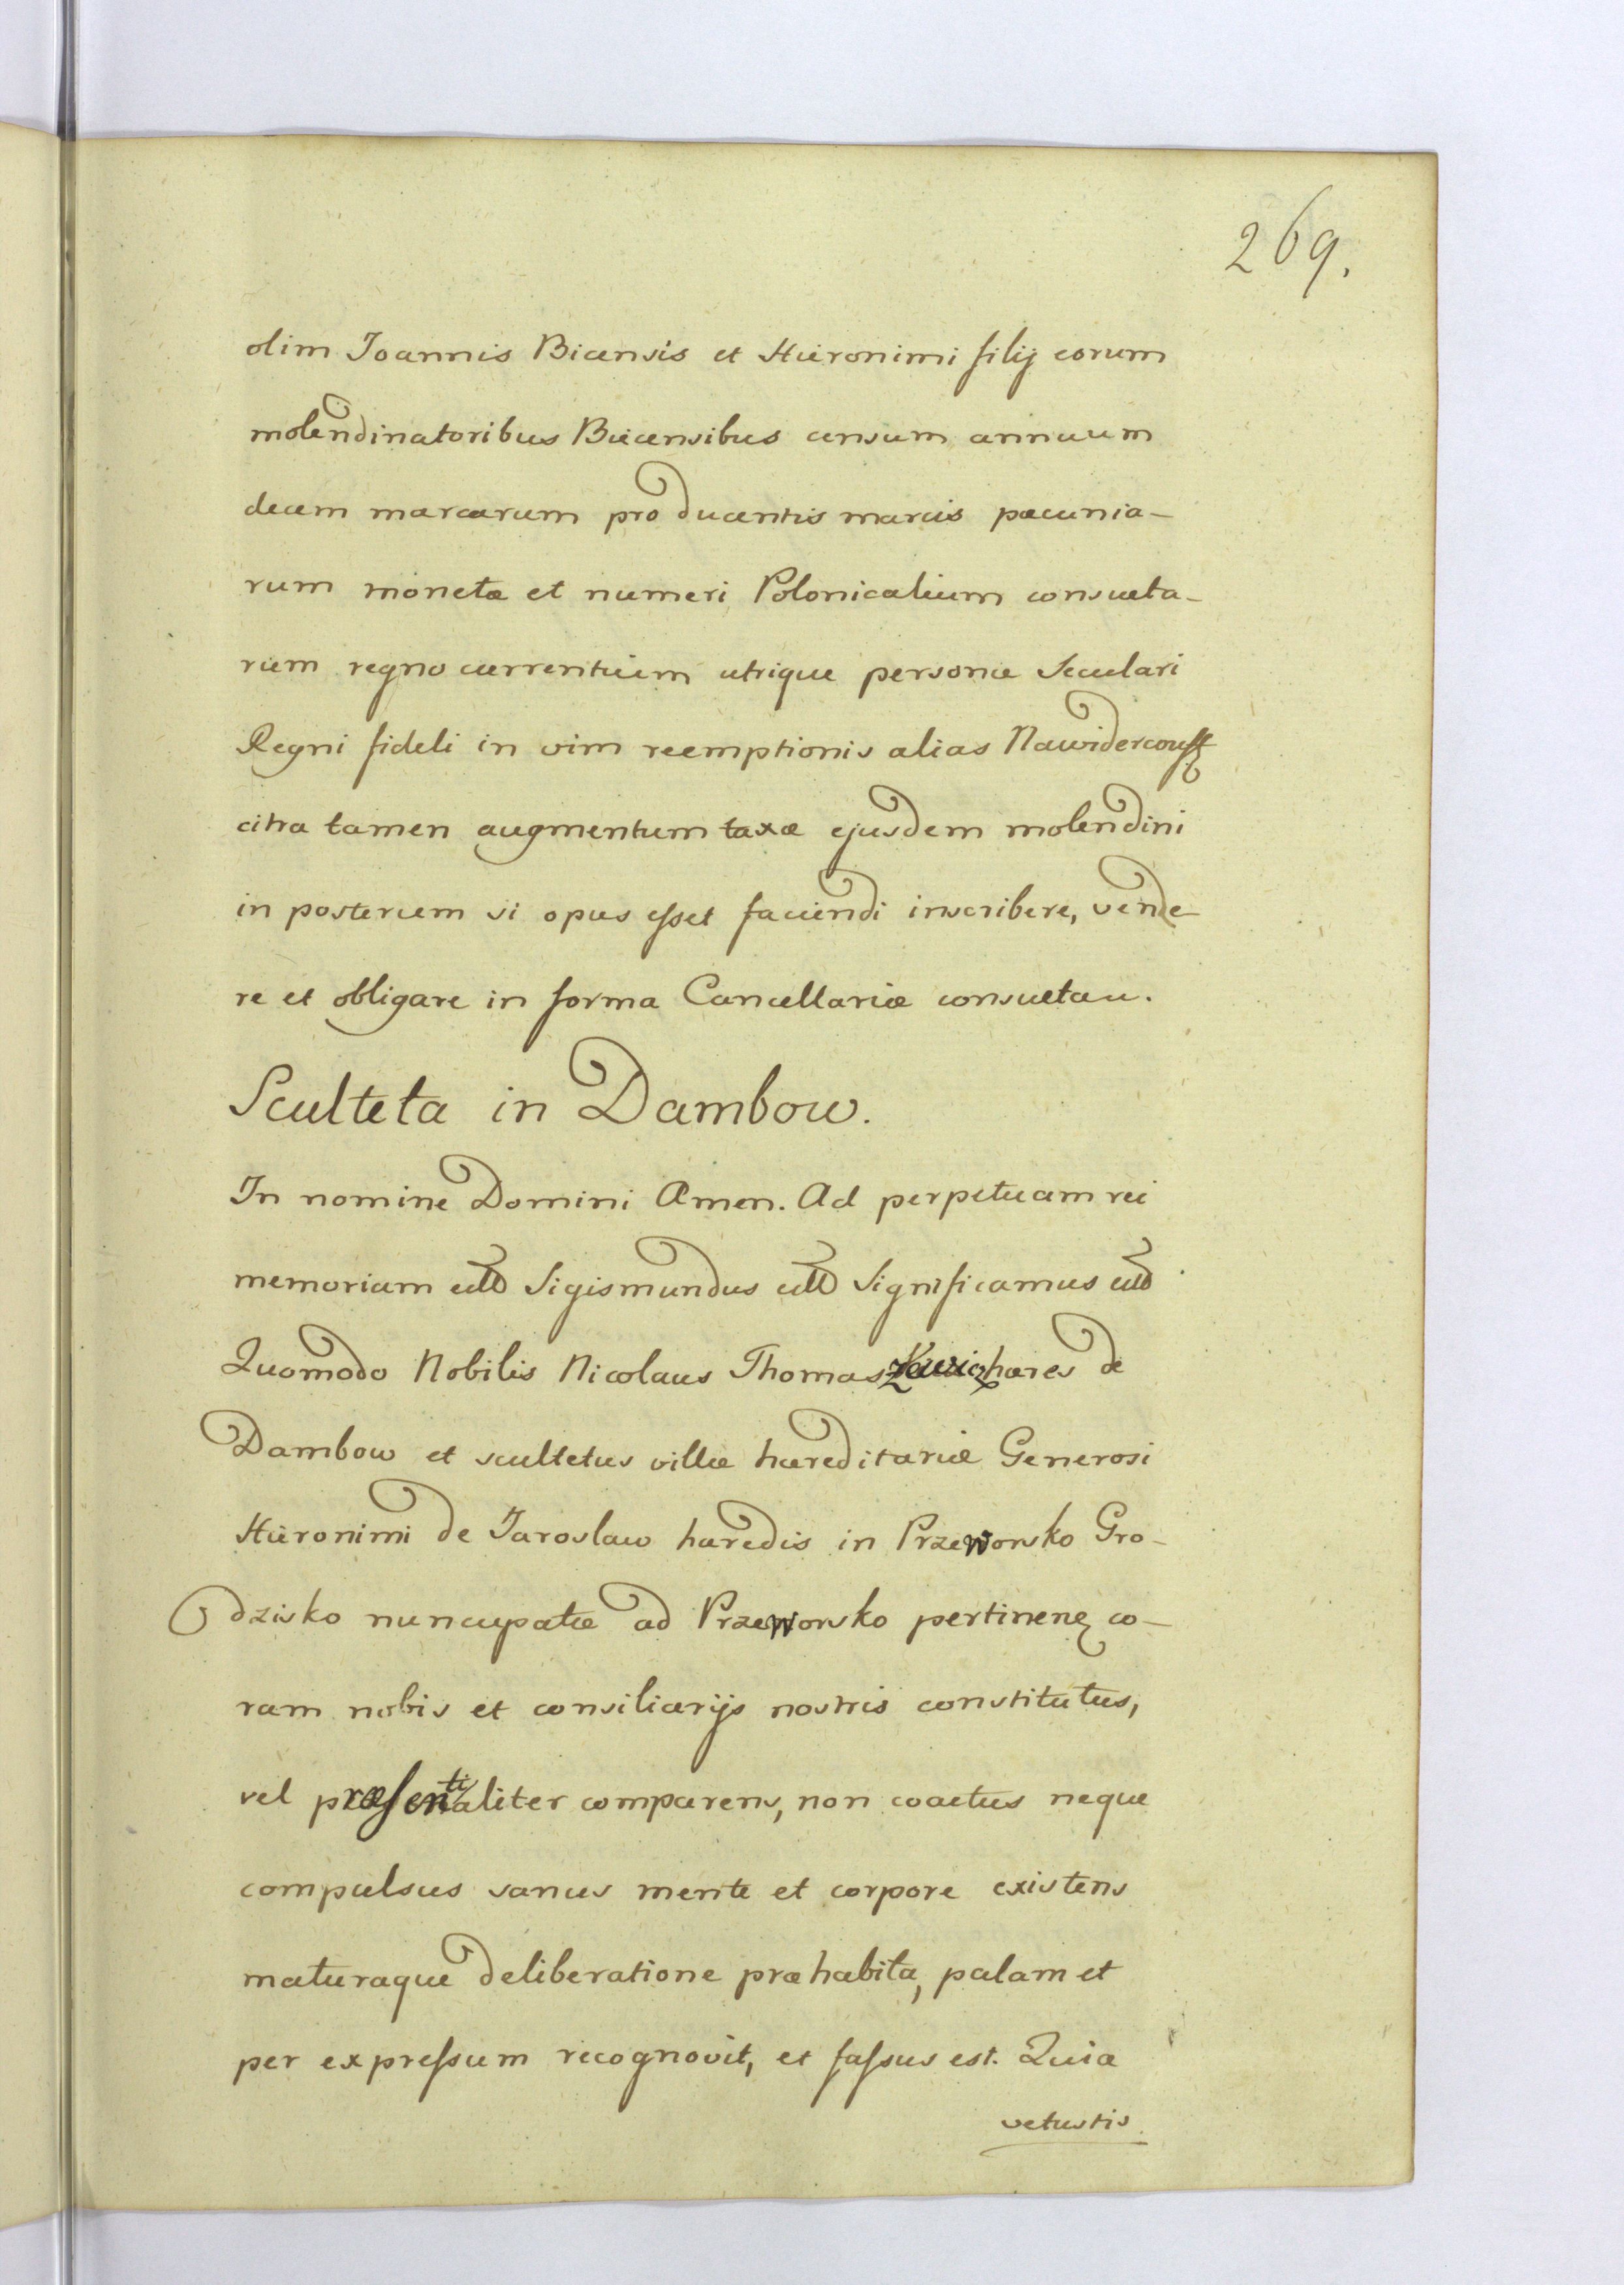 269.
olim Joannis Bicensis et Hieronimi filij eorum
molendinatoribus Biecensibus censum annuum
decem marcarum pro ducentis marcis pæcunia-
rum monetæ et numeri Polonicalium consveta-
rum regno currentium utrique personæ Seculari
Regni fideli in vim reemptionis alias Nawidercouff
citra tamen augmentum taxæ ejusdem molendini
in posterum si opus esset faciendi inscribere, vende-
re et obligare in forma Cancellariæ consvetau.
Sculteta in Dambow.
In nomine Domini Amen. Ad perpetuam rei
memoriam Sigismundus Significamus
Quomodo Nobilis Nicolaus Thomas hæres de
Dambow et scultetus villæ hæreditariæ Generosi
Hieronimi de Jaroslaw hæredis in Przeworsko Gro-
dzisko nuncupatæ ad Przeworsko pertinen co-
ram nobis et consiliarijs nostris constitutus,
vel præsentialiter comparens, non coactus neque
compulsus sanus mente et corpore existens
maturaque deliberatione præhabita, palam et
per expressum recognovit, et fassus est. Quia
vetustis